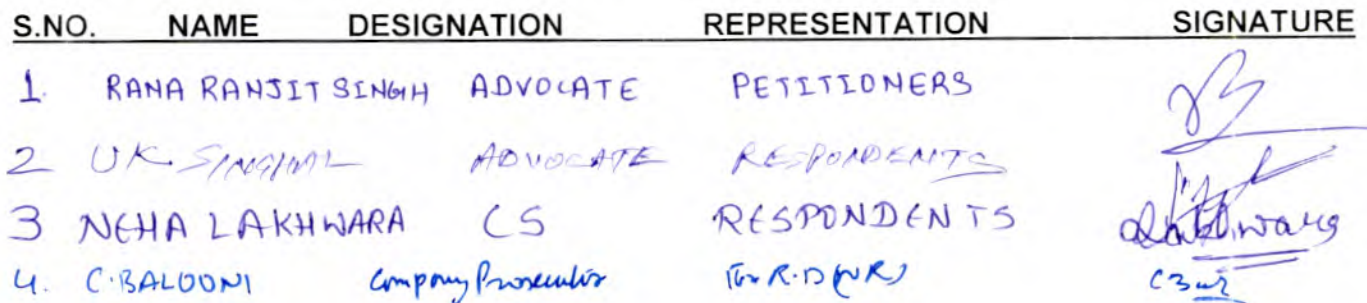 S.NO. NAME DESIGNATION REPRESENTATION SIGNATURE
1. RANA RANJIT SINGH ADVOCATE PETITIONERS
2 UK SINGHAL ADVOCATE RESPONDENTS
3 NEHA LAKHWARA CS RESPONDENTS
4. C.BALOONI Company Prosecutor For R.D (NR)